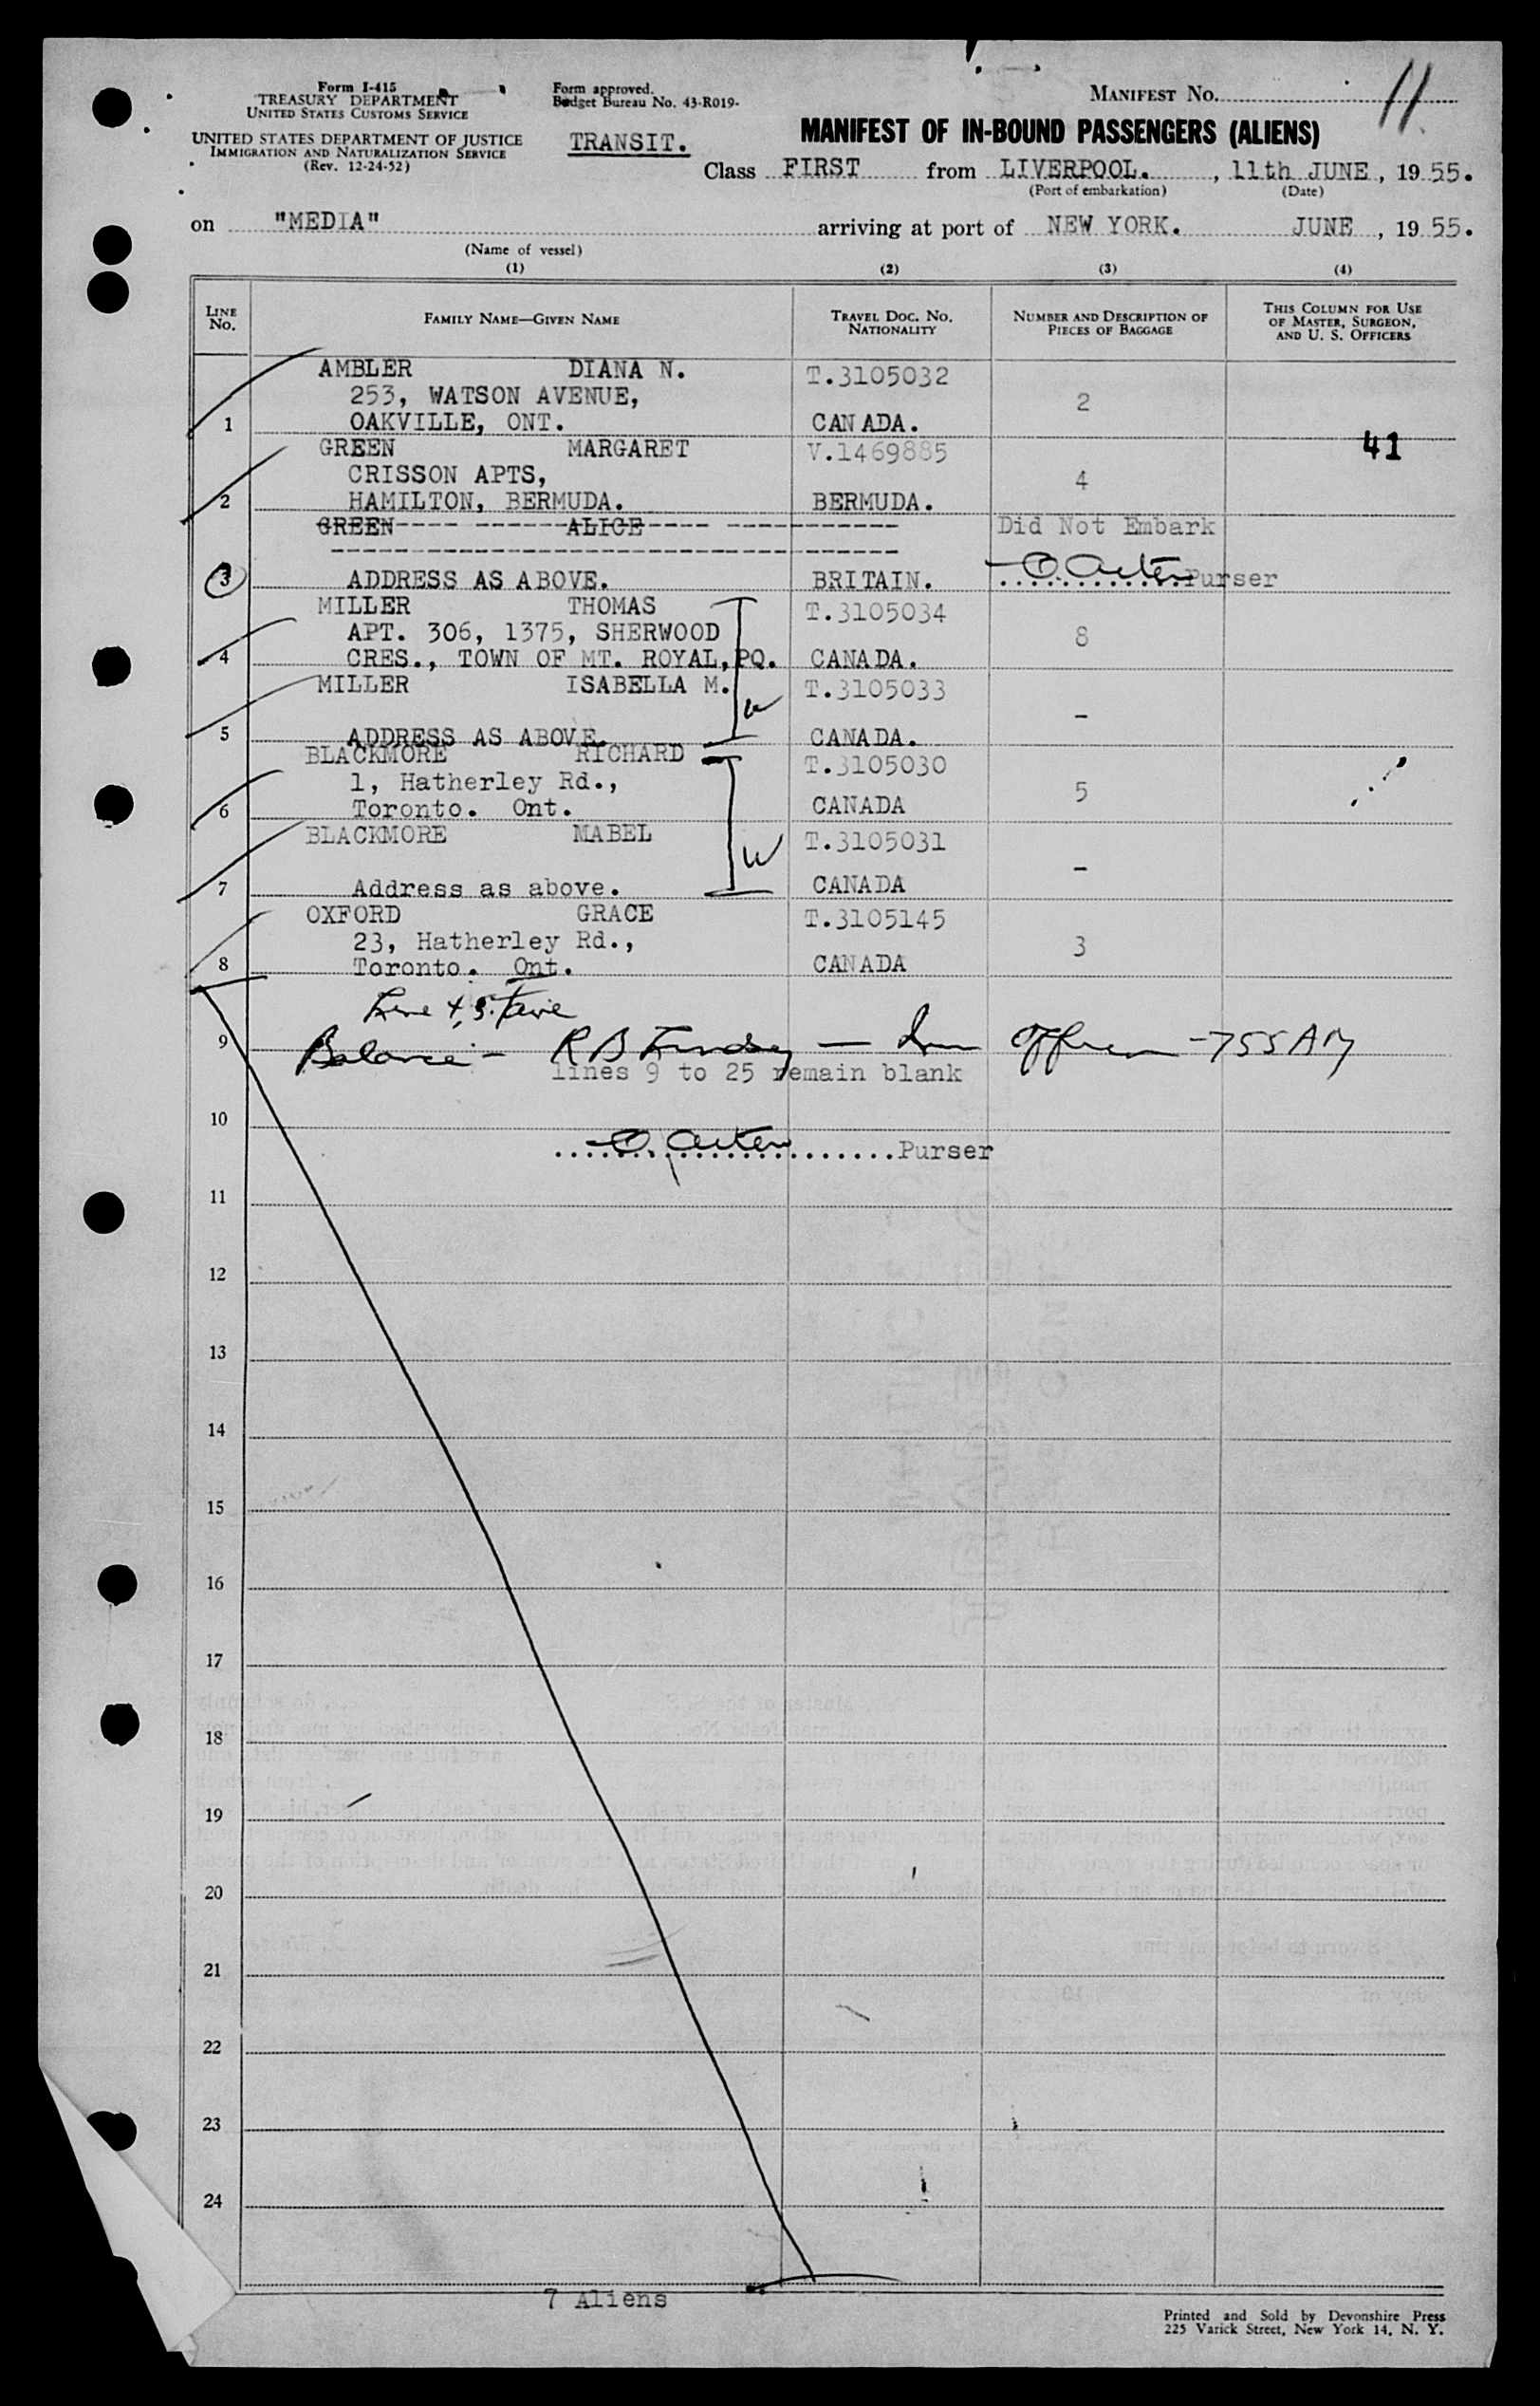 Form I-415
TREASURY DEPARTMENT
UNITED STATES CUSTOMS SERVICE
UNITED STATES DEPARTMENT OF JUSTICE
IMMIGRATION AND NATURALIZATION SERVICE
(Rev. 12-24-52)
Form approved.
Budget Bureau No. 43-R019-
TRANSIT.
MANIFEST NO. 11
MANIFEST OF IN-BOUND PASSENGERS (ALIENS)
Class FIRST from LIVERPOOL. , 11th JUNE , 19 55.
(Port of embarkation) (Date)
on "MEDIA" arriving at port of NEW YORK. JUNE , 19 55.
(Name of vessel)
(1) (2) (3) (4)
LINE NO. FAMILY NAME—GIVEN NAME TRAVEL DOC. NO. NATIONALITY NUMBER AND DESCRIPTION OF PIECES OF BAGGAGE THIS COLUMN FOR USE OF MASTER, SURGEON, AND U. S. OFFICERS
AMBLER DIANA N. T.3105032
253, WATSON AVENUE, 2
1 OAKVILLE, ONT. CANADA.
GREEN MARGARET V.1469885 41
CRISSON APTS, 4
2 HAMILTON, BERMUDA. BERMUDA.
GREEN ALICE Did Not Embark
3 ADDRESS AS ABOVE. BRITAIN. Purser
MILLER THOMAS T.3105034
APT. 306, 1375, SHERWOOD 8
4 CRES., TOWN OF MT. ROYAL, PQ. CANADA.
MILLER ISABELLA M. T.3105033
-
5 ADDRESS AS ABOVE. CANADA.
BLACKMORE RICHARD T.3105030
1, Hatherley Rd., 5
6 Toronto. Ont. CANADA
BLACKMORE MABEL T.3105031
-
7 Address as above. CANADA
OXFORD GRACE T.3105145
23, Hatherley Rd., 3
8 Toronto. Ont. CANADA
9 Balance - R B - 755 AM
lines 9 to 25 remain blank
10
Purser
11
12
13
14
15
16
17
18
19
20
21
22
23
24
7 Aliens
Printed and Sold by Devonshire Press
225 Varick Street, New York 14, N. Y.